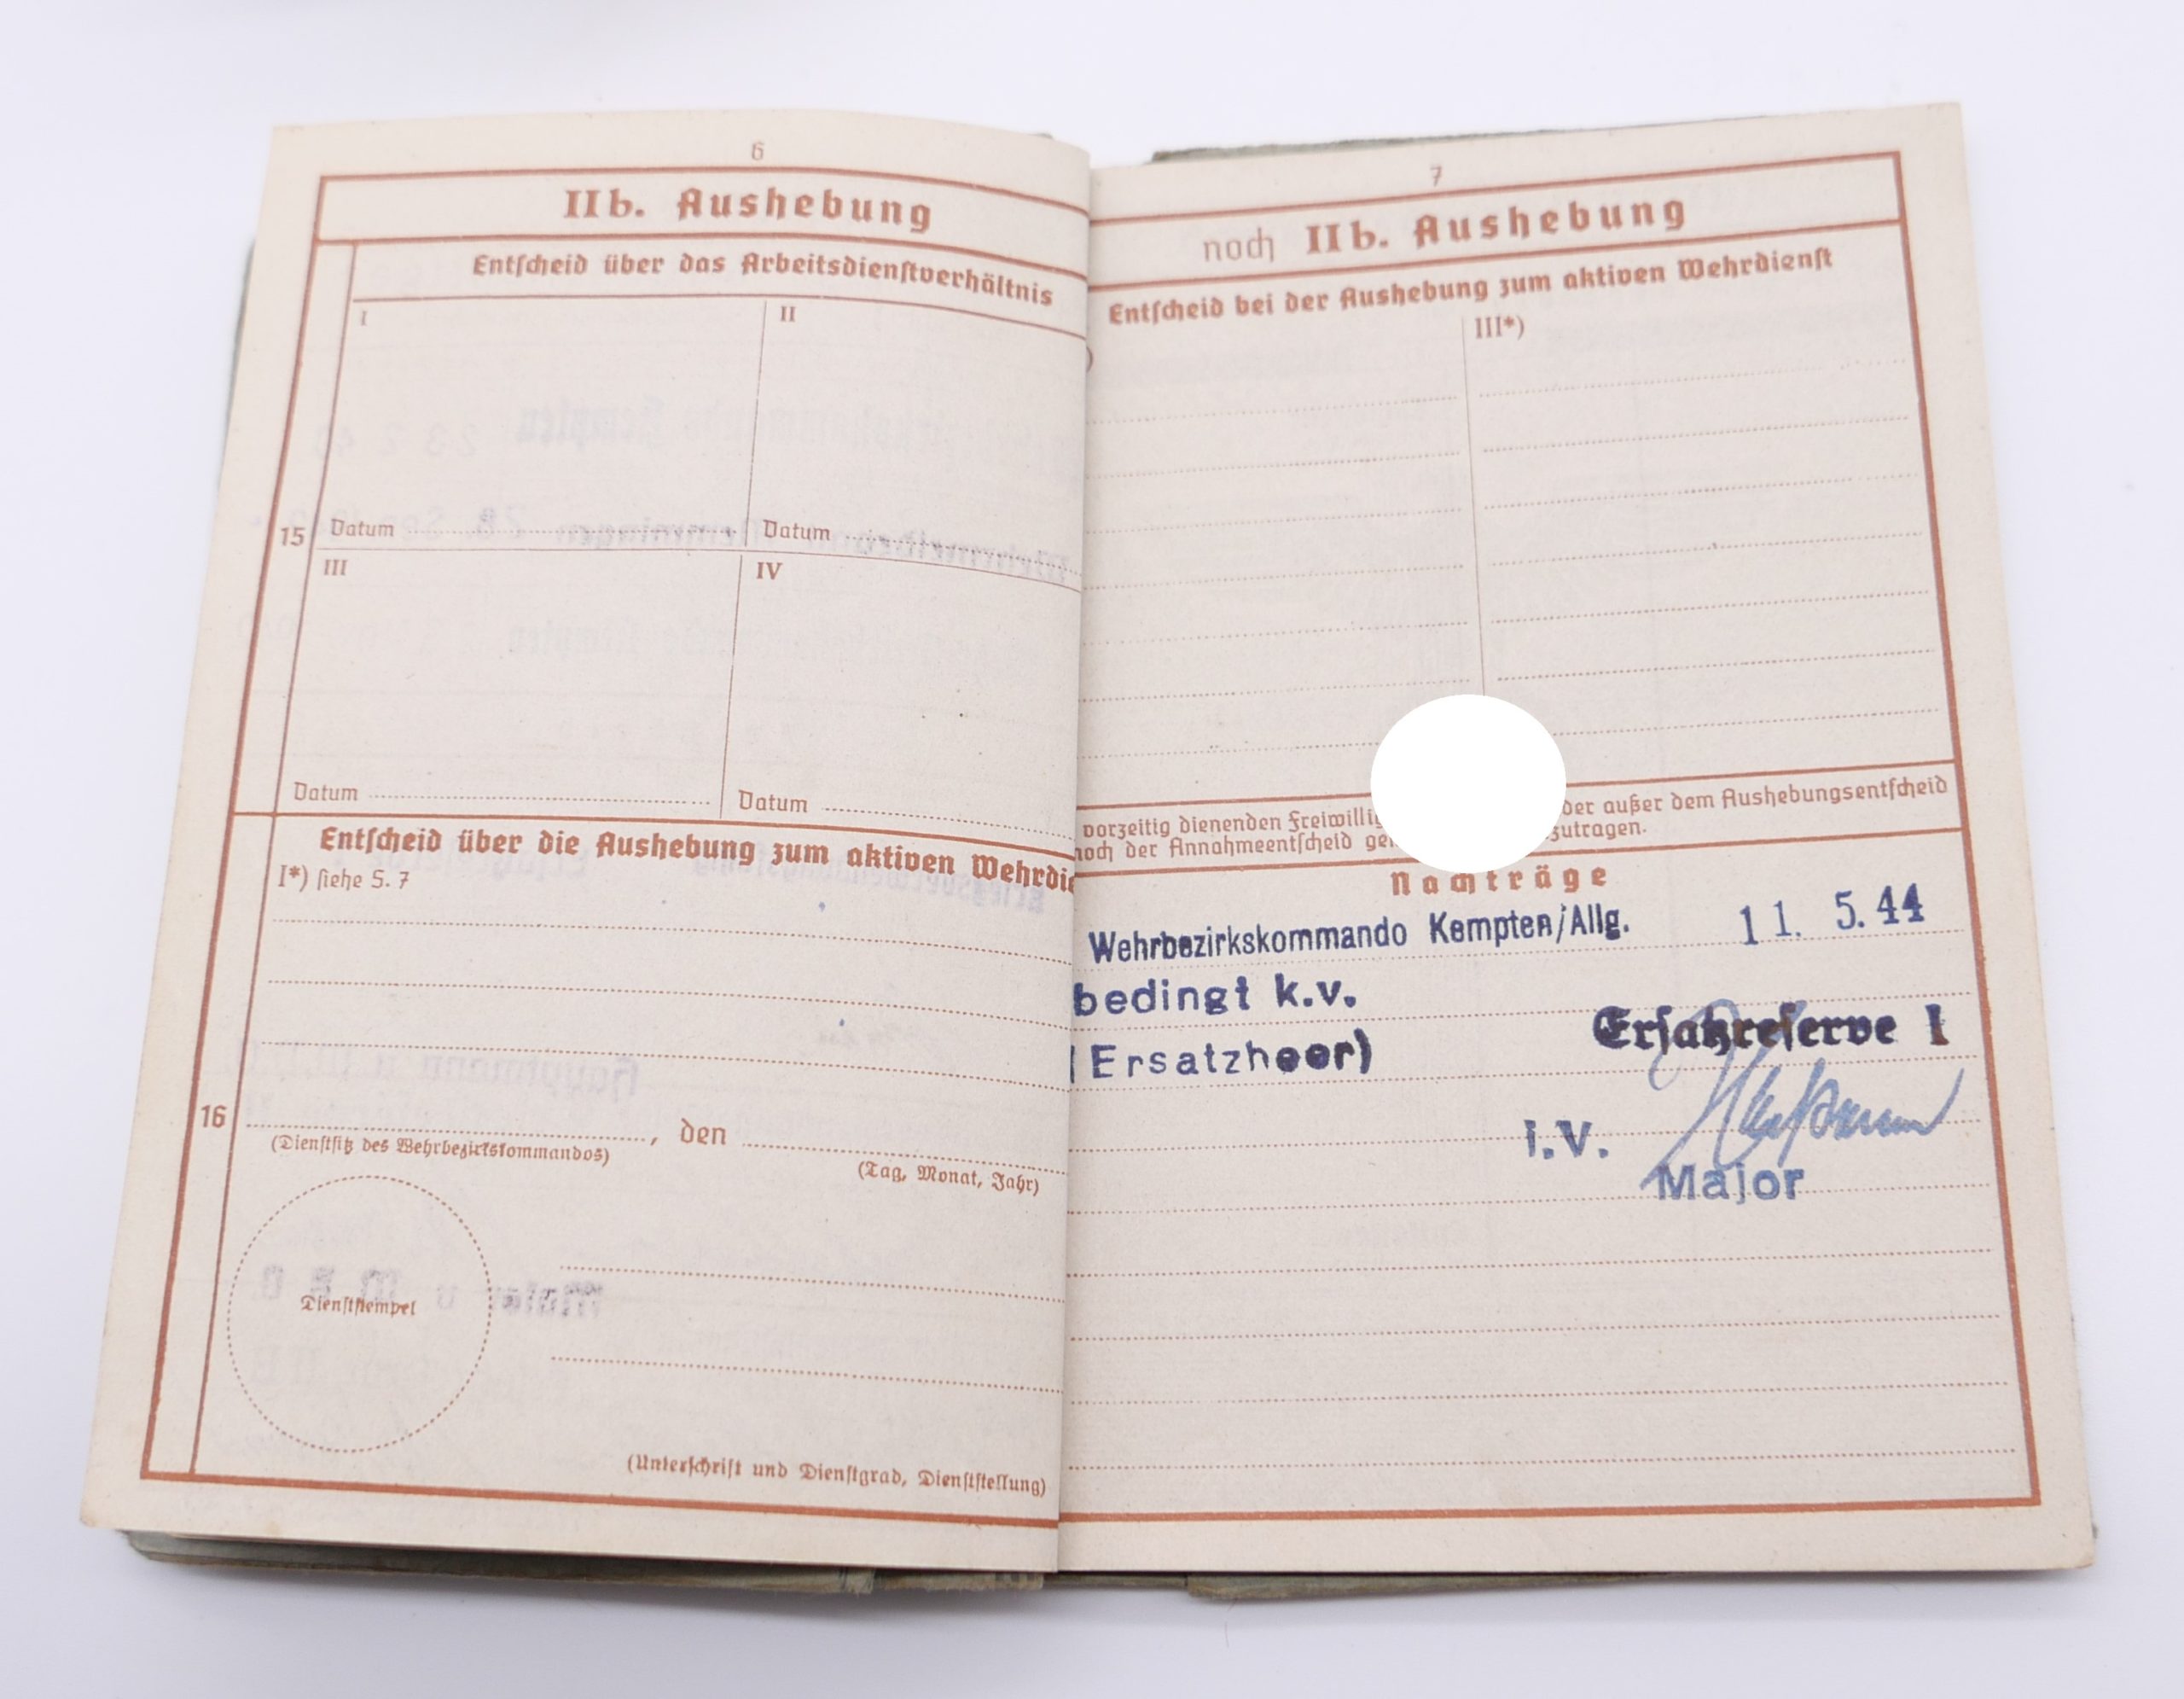 6
IIb. Aushebung
Entscheid über das Arbeitsdienstverhältnis
I
II
15
Datum
Datum
III
IV
Datum
Datum
Entscheid über die Aushebung zum aktiven Wehrdie
I*) siehe S. 7
16
, den
(Dienstsitz des Wehrbezirkskommandos)
(Tag, Monat, Jahr)
Dienststempel
(Unterschrift und Dienstgrad, Dienststellung)
7
noch IIb. Aushebung
Entscheid bei der Aushebung zum aktiven Wehrdienst
)
III*)
vorzeitig dienenden der außer dem Aushebungsentscheid
noch der Annahmeentscheid zutragen.
Nachträge
Wehrbezirkskommando Kempten/Allg. 11. 5. 44
bedingt k.v.
(Ersatzheer)
Ersatzreserve I
i.V.
Major